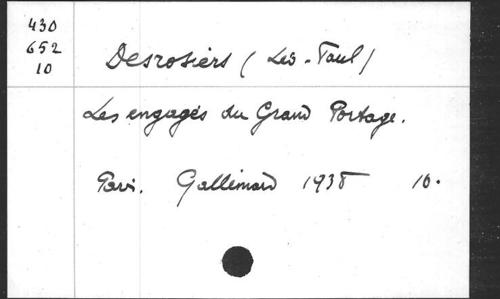 430
652
10
Desrosiers (Léo-Paul)
Les engagés du Grand Portage.
Paris. Gallimard 1938 16.